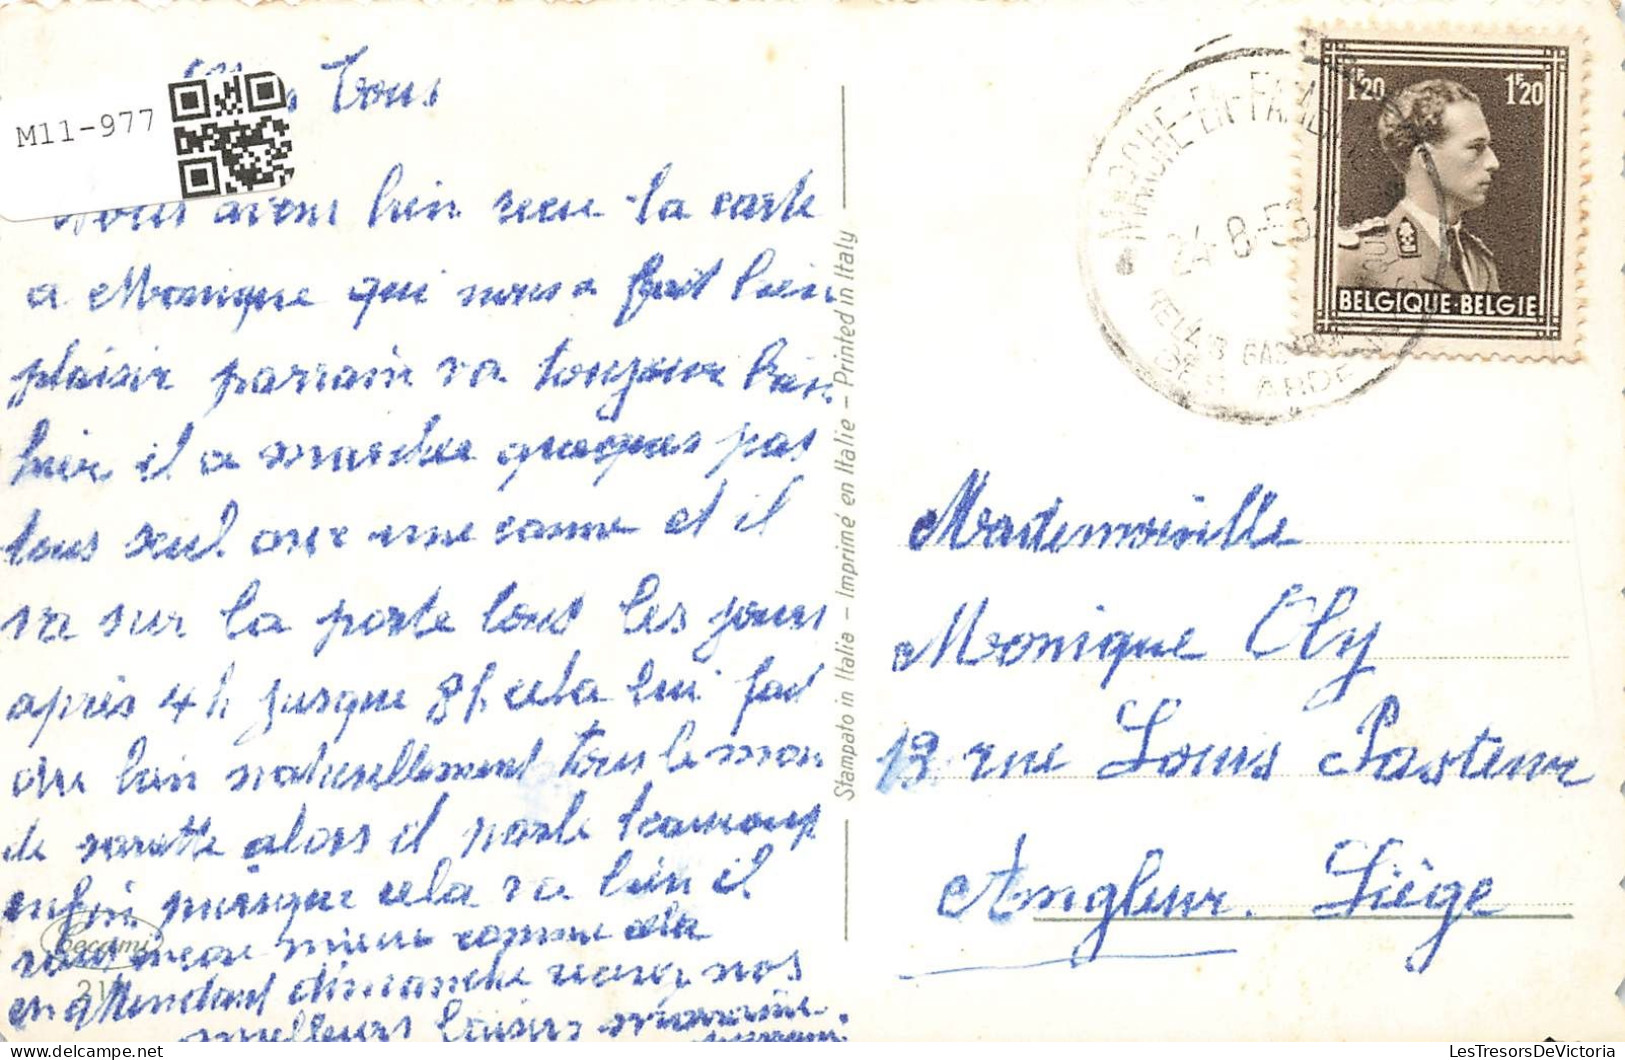 M11-977
Tous
Nous avons bien recu la carte
a Monique qui nous a fait bien
plaisir parrain va toujours bien
hier il a marcher quesques pas
tous seul avec une canne et il
va sur la porte tous les jours
après 4 h jusque 8 h. cela lui fait
du bien naturellement tous le mon
de s'arrette alors il parle beaucoup
enfin puisque cela va bien il
vaut mieux comme cela
en attendant dimanche recevez nos
meilleurs baisers marraine
parrain.
Cecami
Stampato in Italia – Imprimé en Italie – Printed in Italy
MARCHE-EN-FAMENNE
24-8-55
DES ARDE
1F20 1F20
BELGIQUE·BELGIE
Mademoiselle
Monique Oly
13 rue Louis Pasteur
Angleur. Liège
LesTresorsDeVictoria